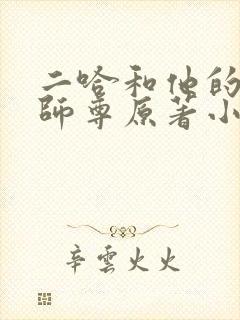 二哈和他的
師尊原著小
辛雲火火